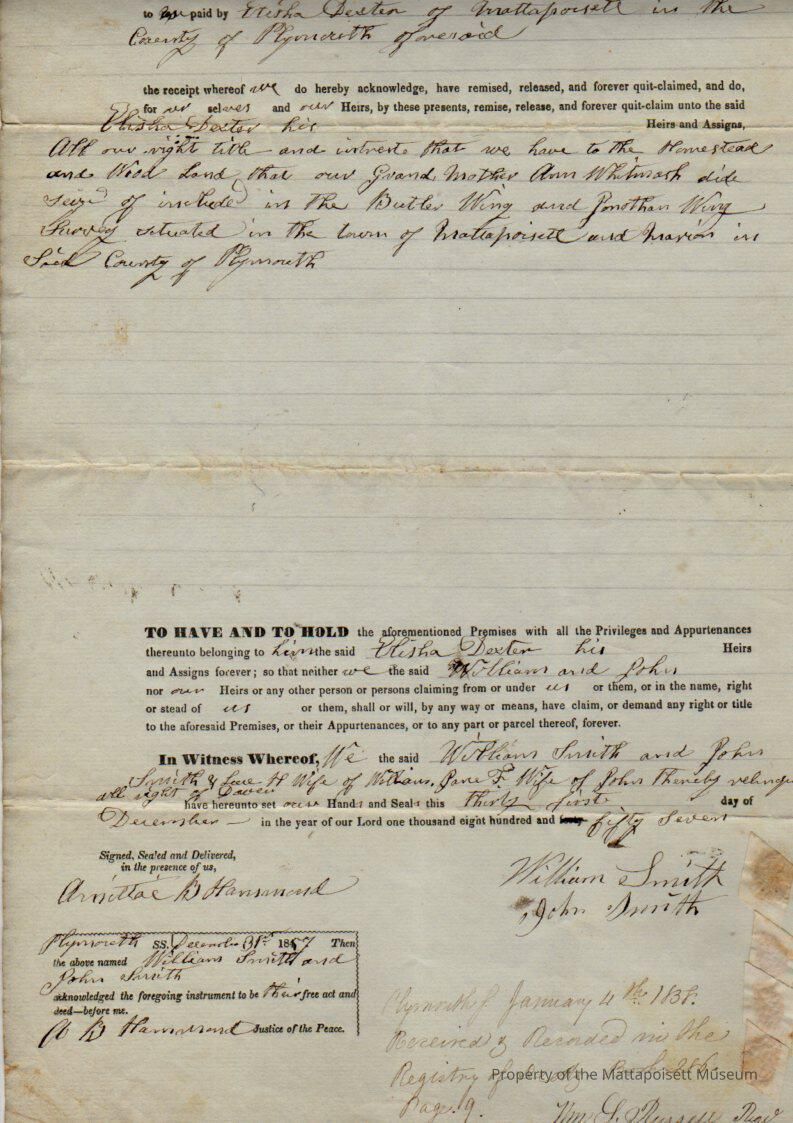 to us paid by Elisha Dexter of Mattapoisett in the
County of Plymouth aforesaid
the receipt whereof we do hereby acknowledge, have remised, released, and forever quit-claimed, and do,
for our selves and our Heirs, by these presents, remise, release, and forever quit-claim unto the said
Elisha Dexter his Heirs and Assigns,
All our right title and intrest that we have to the Homestead
and Wood Land that our Grand Mother Ann Whitmash dide
seizd of includd in the Butler Wing and Jonathan Wing
Survey situated in the town of Mattapoisett and Marion in
Said County of Plymouth
TO HAVE AND TO HOLD the aforementioned Premises with all the Privileges and Appurtenances
thereunto belonging to him the said Elisha Dexter his Heirs
and Assigns forever; so that neither we the said William and John
nor our Heirs or any other person or persons claiming from or under us or them, or in the name, right
or stead of us or them, shall or will, by any way or means, have claim, or demand any right or title
to the aforesaid Premises, or their Appurtenances, or to any part or parcel thereof, forever.
In Witness Whereof, We the said William Smith and John
Smith & H Wife of William, Jane F. Wife of John thereby
all right of Dower
have hereunto set our Hands and Seals this thirty first day of
December in the year of our Lord one thousand eight hundred and forty fifty seven
Signed, Sealed and Delivered,
in the presence of us,
B Hammond
William Smith
John Smith
Plymouth SS. December 31st 1857 Then
the above named William Smith and
John Smith
acknowledged the foregoing instrument to be their free act and
deed—before me.
B Hammond Justice of the Peace.
Plymouth January 4th 1858.
Received & Recorded in the
Registry of
Page 9.
Wm S. Russell
Property of the Mattapoisett Museum